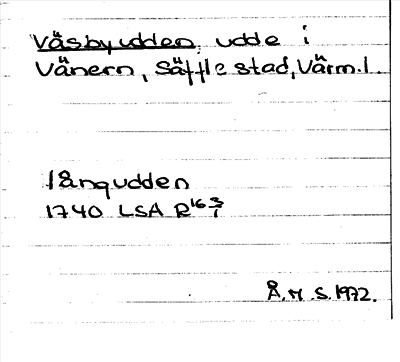 Väsbyudden, udde i
Vänern, Säffle stad, Värm. l.
långudden
1740 LSA R16 3/1
Å. M. S. 1972.